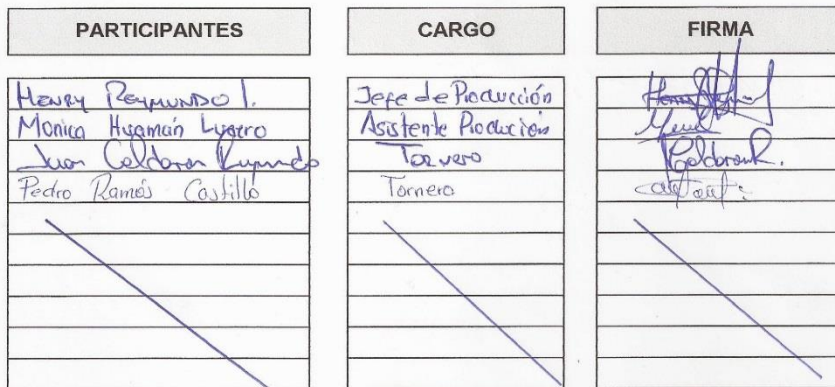 PARTICIPANTES CARGO FIRMA
HENRY REYMUNDO I. Jefe de Producción
Monica Huamán Lygero Asistente Producción
Juan Calderon Raymundo Tornero PCalderonR.
Pedro Ramos Castillo Tornero